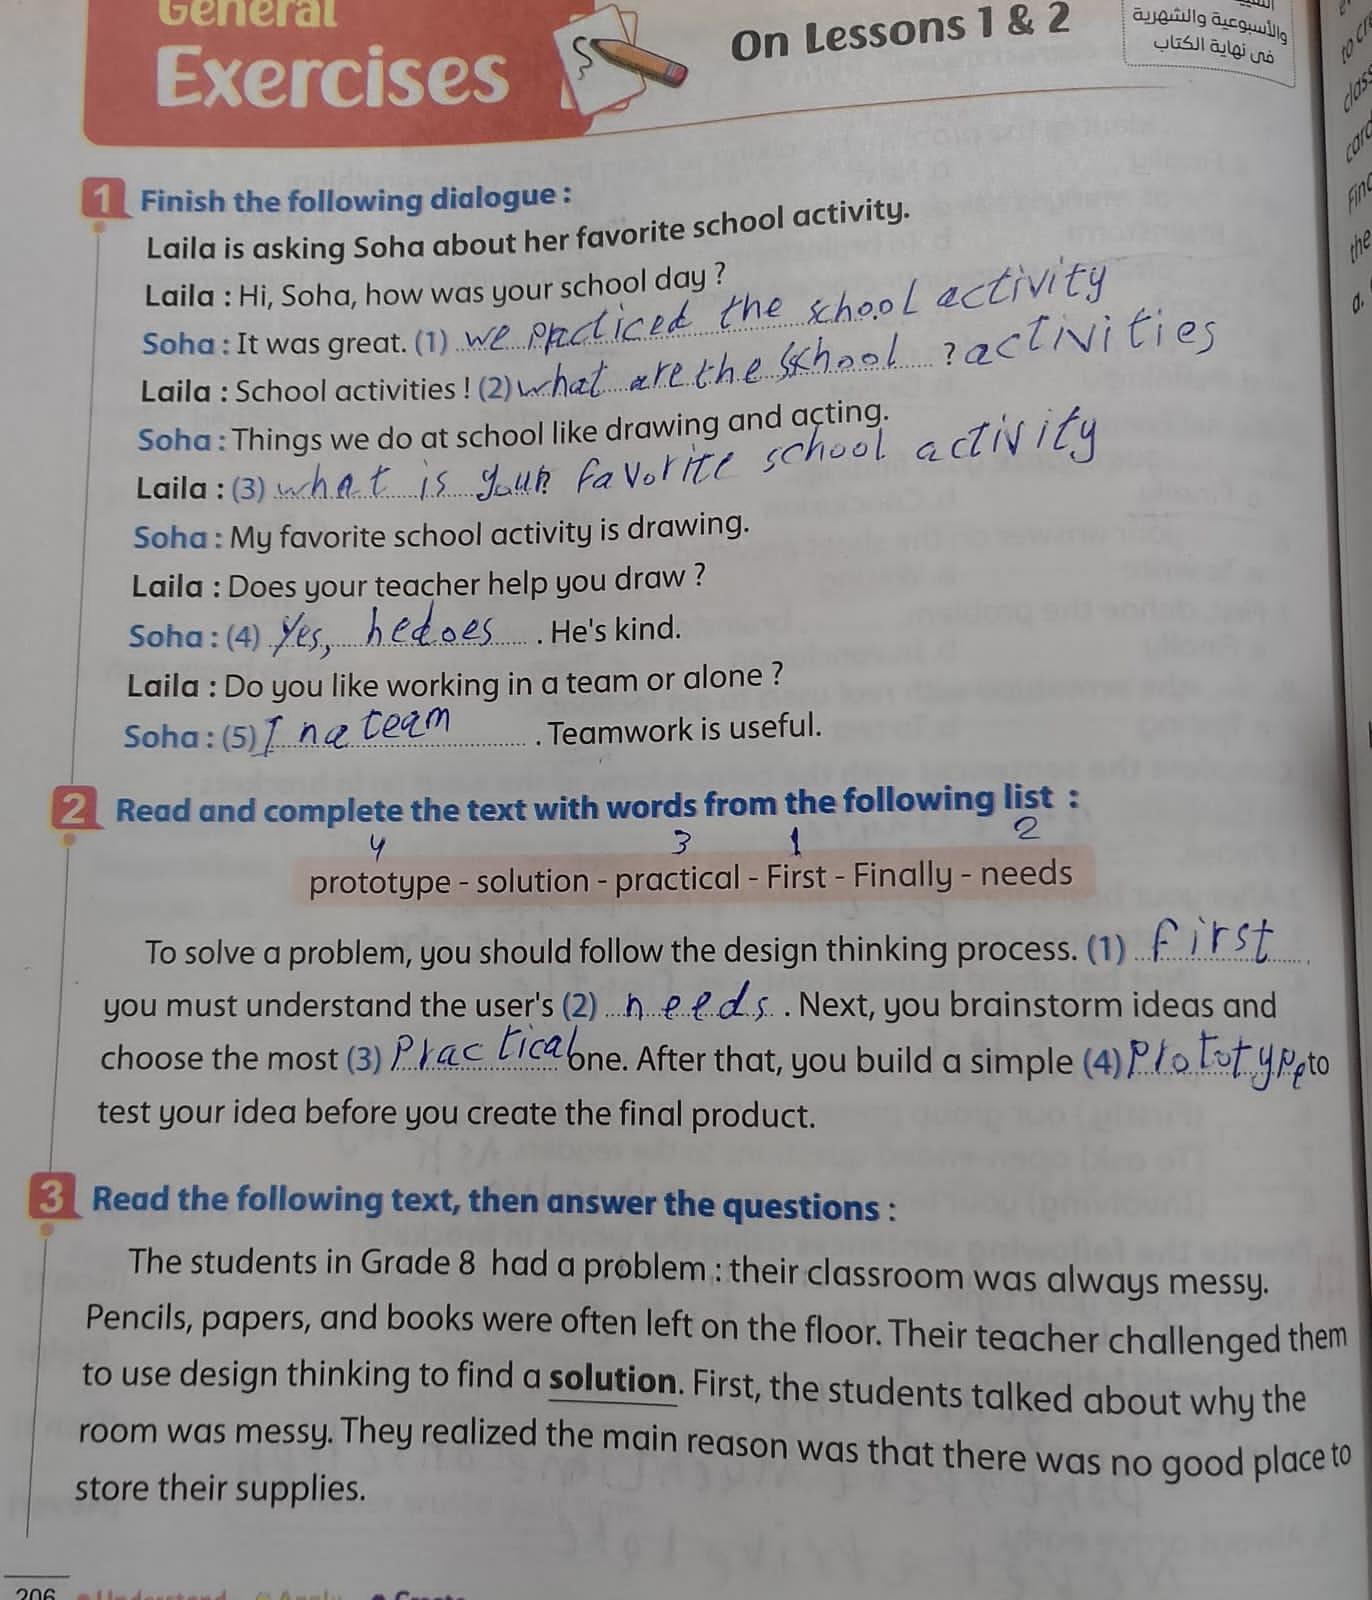 General
Exercises
On Lessons 1 & 2
والأسبوعية والشهرية
فى نهاية الكتاب
1 Finish the following dialogue :
Laila is asking Soha about her favorite school activity.
Laila : Hi, Soha, how was your school day ?
Soha : It was great. (1) we practiced the school activity
Laila : School activities ! (2) what are the school ? activities
Soha : Things we do at school like drawing and acting.
Laila : (3) what is your favorite school activity ?
Soha : My favorite school activity is drawing.
Laila : Does your teacher help you draw ?
Soha : (4) Yes, he does . He's kind.
Laila : Do you like working in a team or alone ?
Soha : (5) In a team . Teamwork is useful.
2 Read and complete the text with words from the following list :
4 3 1 2
prototype - solution - practical - First - Finally - needs
To solve a problem, you should follow the design thinking process. (1) first ,
you must understand the user's (2) needs . Next, you brainstorm ideas and
choose the most (3) Practical one. After that, you build a simple (4) Prototype to
test your idea before you create the final product.
3 Read the following text, then answer the questions :
The students in Grade 8 had a problem : their classroom was always messy.
Pencils, papers, and books were often left on the floor. Their teacher challenged them
to use design thinking to find a solution. First, the students talked about why the
room was messy. They realized the main reason was that there was no good place to
store their supplies.
206 Understand Apply Create